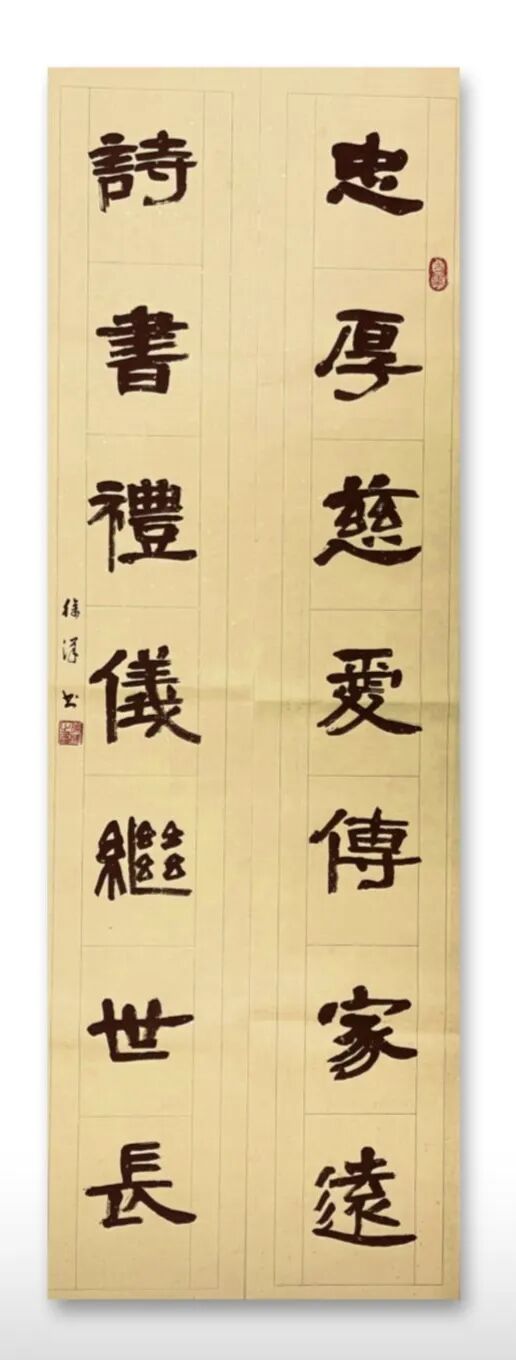 忠厚慈愛傳家遠
詩書禮儀繼世長